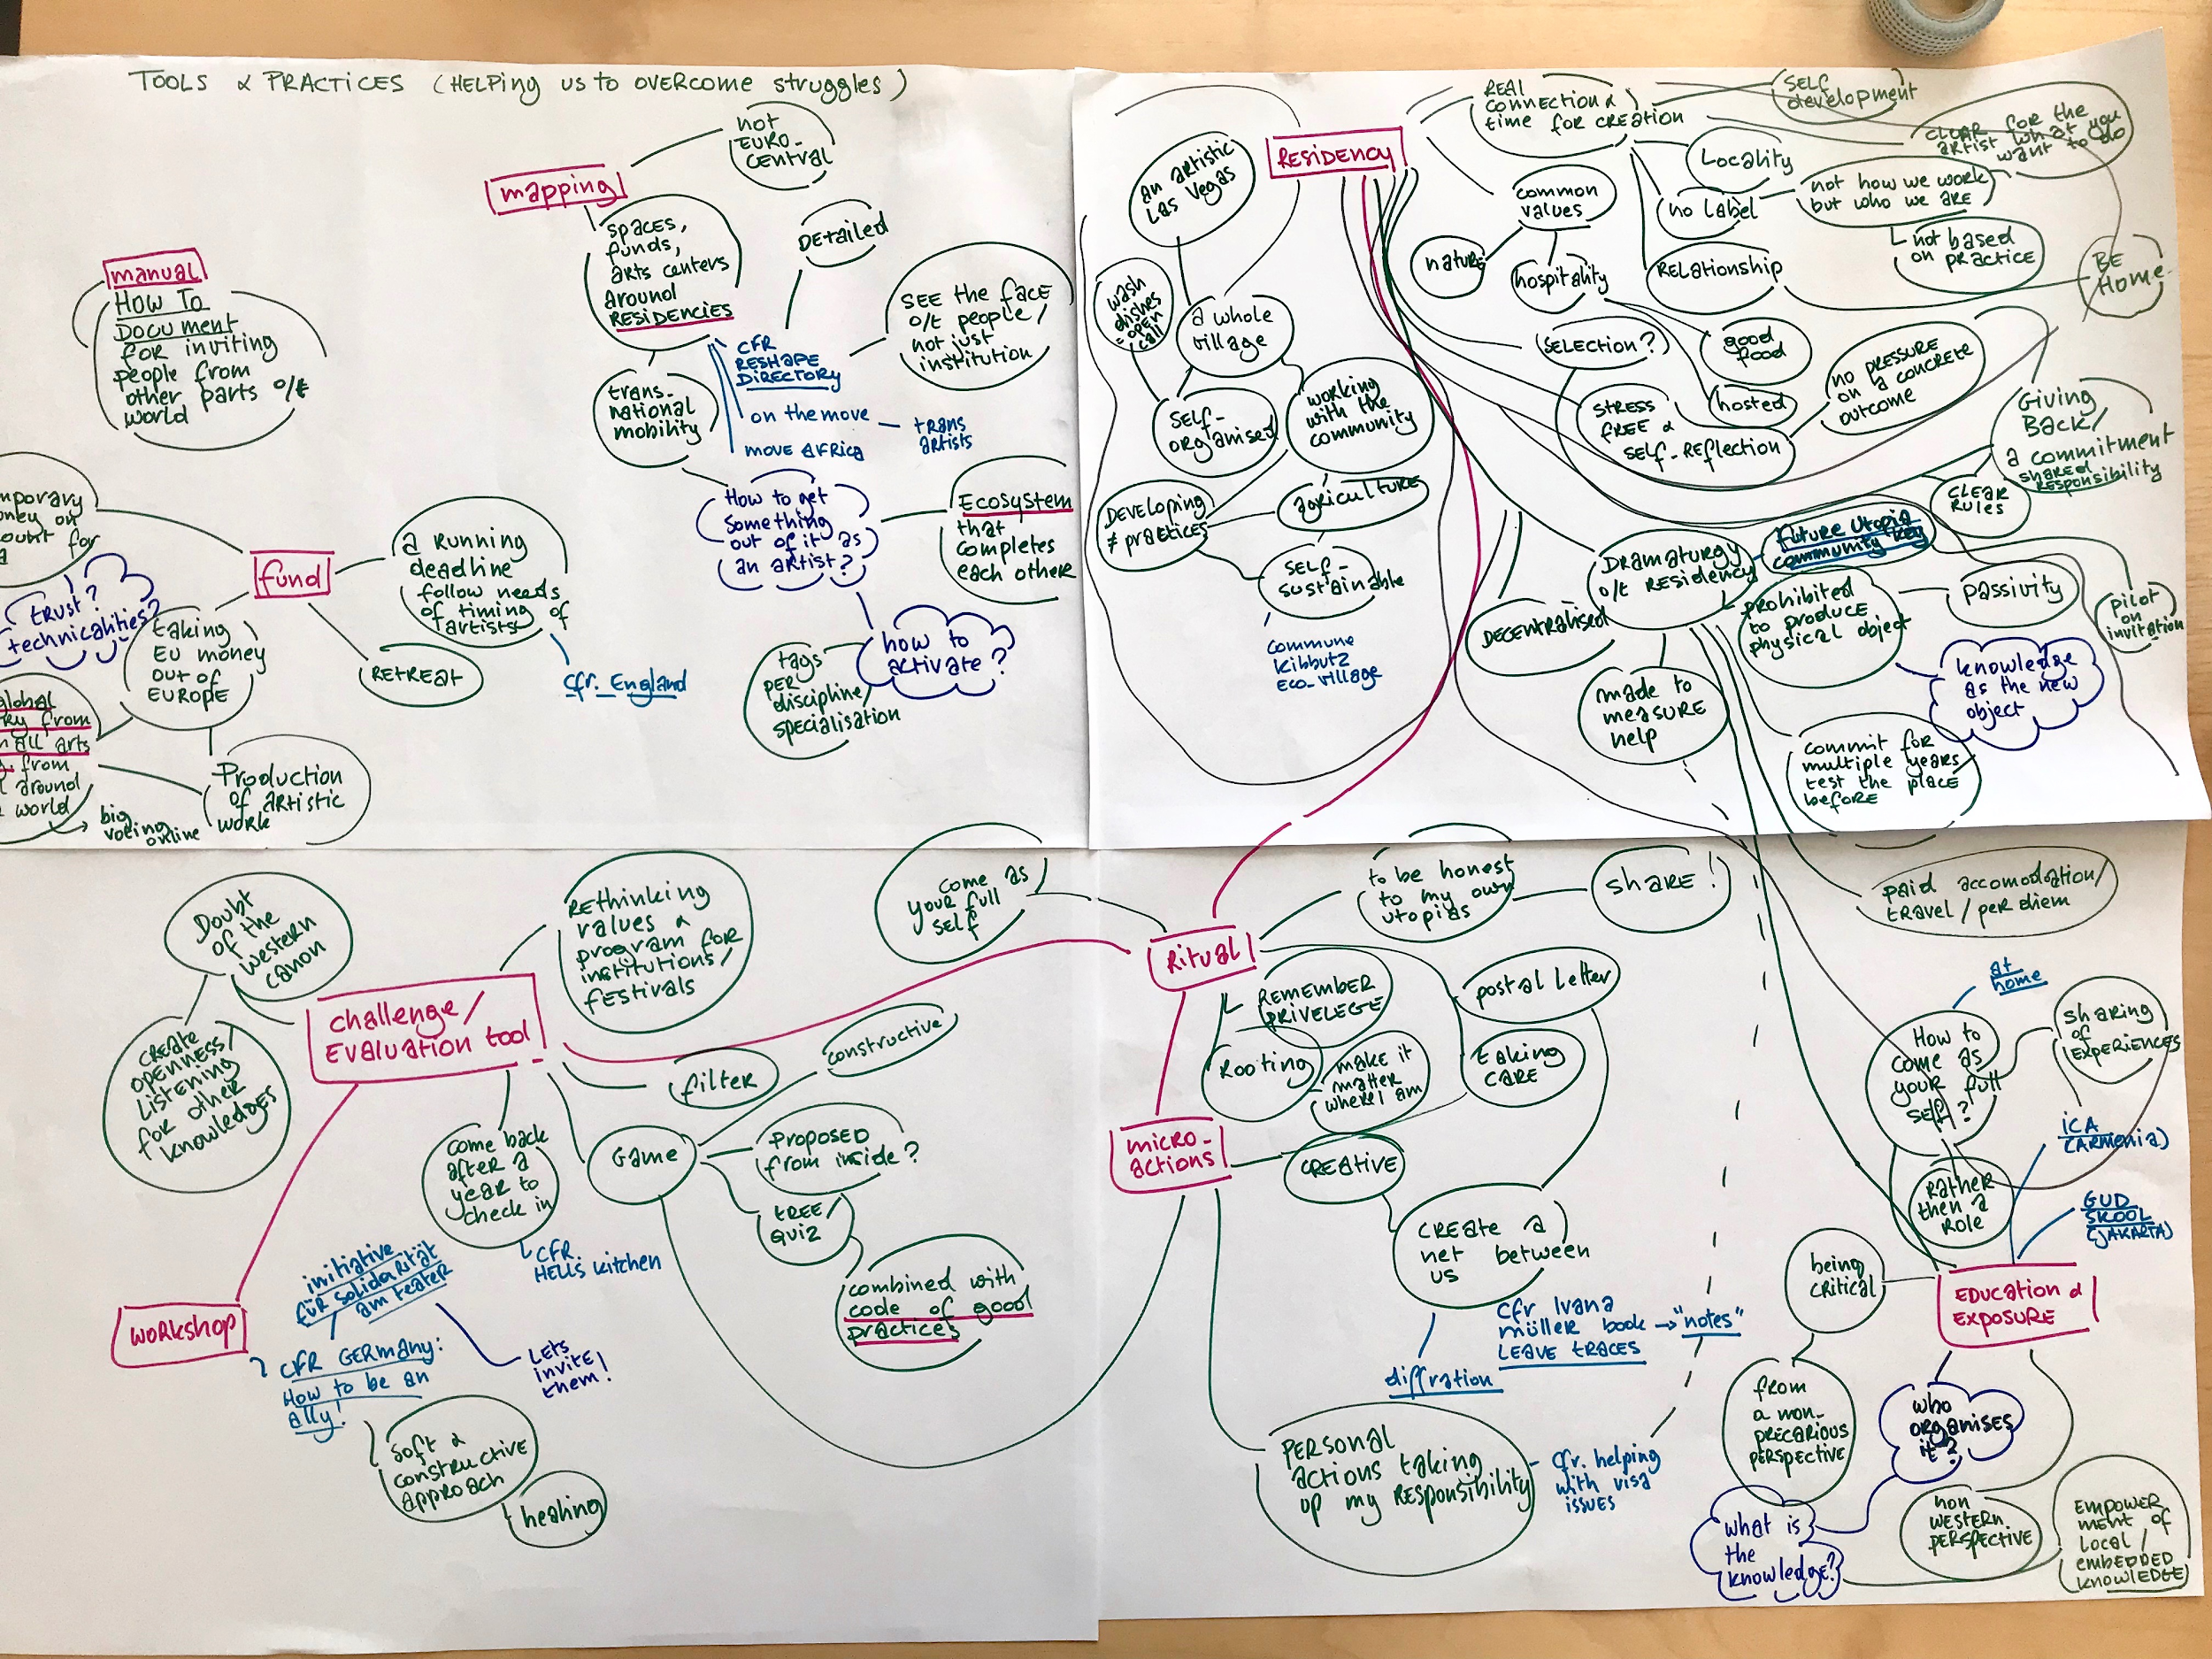 TOOLS & PRACTICES (HELPing us to OVERCOME struggles)
manual
HOW TO
DOCUMENT
for inviting
people from
other parts o/t
world
mapping
not
EURO-
CENTRAL
spaces,
funds,
arts centers
around
RESIDENCIES
DEtailed
SEE the face
o/t people/
not just
institution
CFR
RESHAPE
DIRECTORY
on the move
trans
artists
move AfRica
trans-
national
mobility
How to get
something
out of it as
an artist?
Ecosystem
that
completes
each other
how to
activate?
tags
PER
discipline/
specialisation
fund
a RUNNING
deadline
follow needs
of timing of
artists
cfr. England
REtREat
trust?
technicalities?
taking
EU money
out of
EUROPE
Production
of artistic
work
mporary
oney on
for
global
from
all arts
from
around
world
big
voting
online
RESiDENCY
REAL
connection &
time for CREation
SELF
development
CLEAR for the
artist what you
want to do
an artistic
Las Vegas
wash
dishes
open
call
a whole
village
SELF-
organised
working
with the
community
DEVELOPing
≠ practices
agriculture
SELF-
sustainable
commune
kibbutz
Eco-village
Locality
common
values
no Label
not how we work
but who we are
not based
on practice
nature
hospitality
RELationship
BE
Home
(SELECTION?)
good
food
hosted
STRESS
FREE &
SELF-REflection
no PRESSURE
on a concrete
outcome
Giving
Back/
a commitment
shared
Responsibility
CLEAR
RULES
Dramaturgy
o/t RESidency
future Utopia
community key
DECENTRALISED
prohibited
to produce
physical object
passivity
pilot
on
invitation
knowledge
as the new
object
made to
measure
help
commit for
multiple years
test the place
before
paid accomodation/
travel/per diem
Doubt
of the
western
canon
CREATE
openness/
Listening
for other
knowledges
challenge/
EValuation tool
REthinking
values &
program for
institutions/
festivals
come as
your full
self
filter
constructive
Game
PROPOSED
from inside?
tREE/
quiz
combined with
code of good
practices
come back
after a
year to
check in
CFR.
HELLS kitchen
initiative
für solidarität
am teater
Lets
invite
them!
workshop
CFR GERmany:
How to be an
ally!
soft &
constructive
approach
healing
Ritual
to be honest
to my own
utopias
SHARE!
REMEMBER
PRIVELEGE
Rooting
make it
matter
where I am
postal Letter
taking
CARE
micro-
actions
CREAtive
CREATE a
net between
us
diffration
cfr Ivana
müller book → "notes"
LEAVE tRaces
PERsonal
actions taking
up my RESponsibility
cfr. helping
with visa
issues
at
home
How to
come as
your full
self?
sharing
of
EXPERIENCES
Rather
then a
ROLE
iCA
(ARMEnia)
GUD
SKOOL
(JAKARTA)
being
critical
EDUcation &
EXPOSURE
from
a non-
precarious
perspective
who
organises
it?
what is
the
knowledge?
non
WESTERN
PERSPECTIVE
EMPOWER
MENT of
Local/
EMBEDDED
KNOWLEDGE